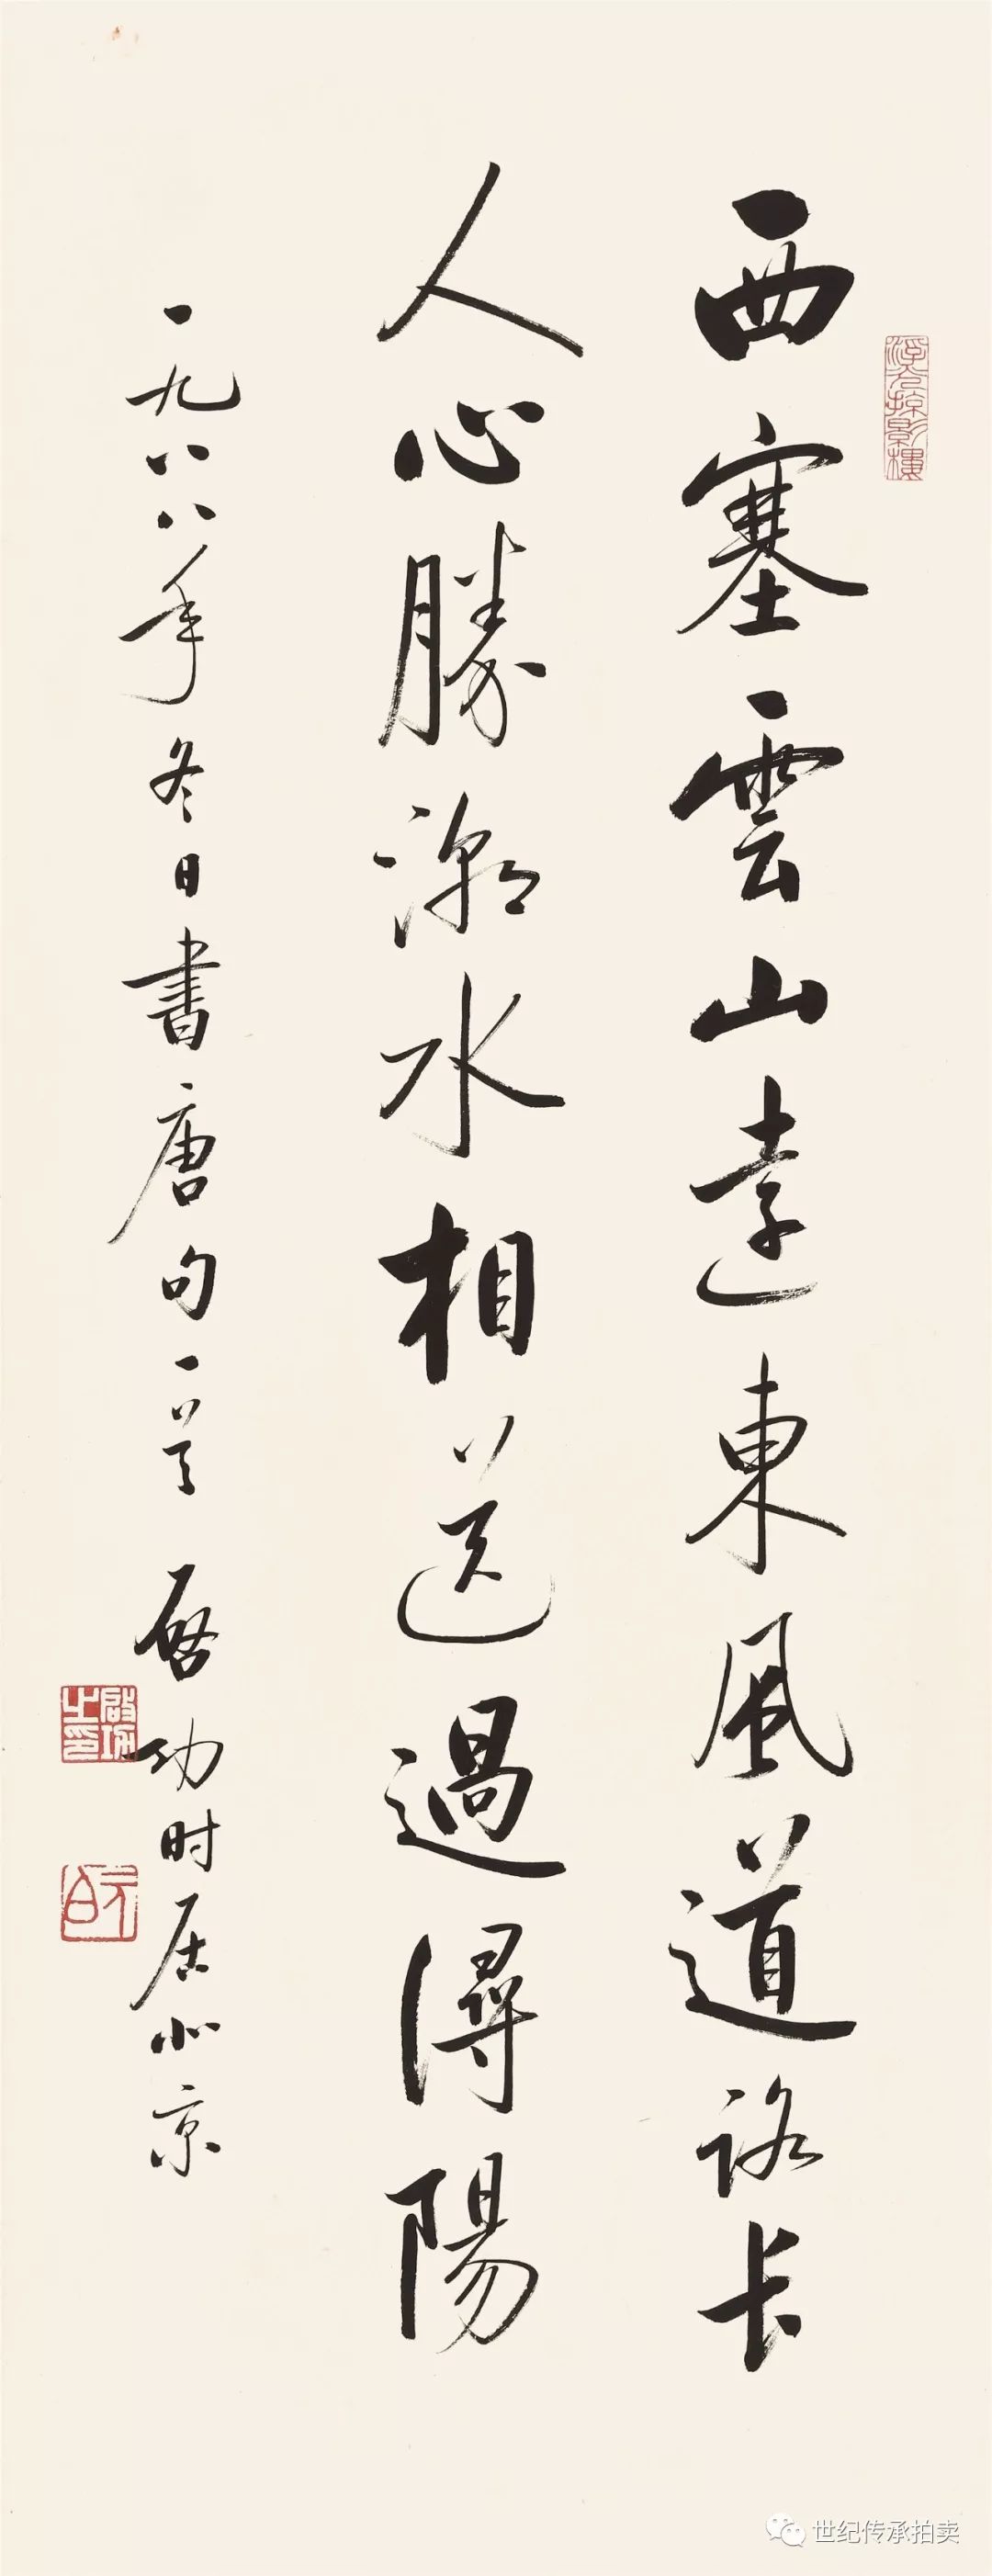 西塞雲山遠東風道路長
人心勝潮水相送過潯陽
一九八八年冬日書唐句一首 啓功时居北京
浮光掠影樓
啟功之印
元白
世纪传承拍卖